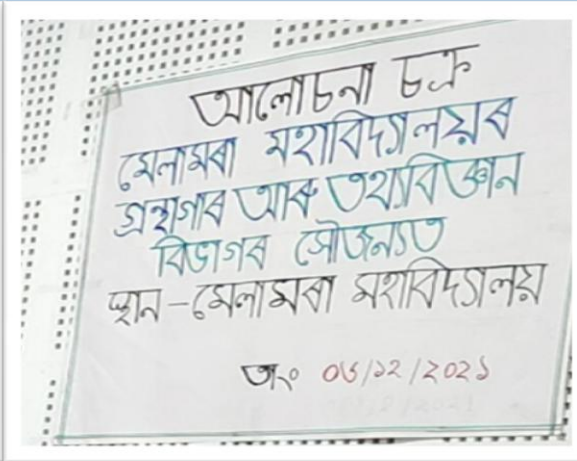 আলোচনা চক্ৰ
মেলামৰা মহাবিদ্যালয়ৰ
গ্ৰন্থাগাৰ আৰু তথ্যবিজ্ঞান
বিভাগৰ সৌজন্যত
স্থান - মেলামৰা মহাবিদ্যালয়
তাং ০৬/১২/২০২১